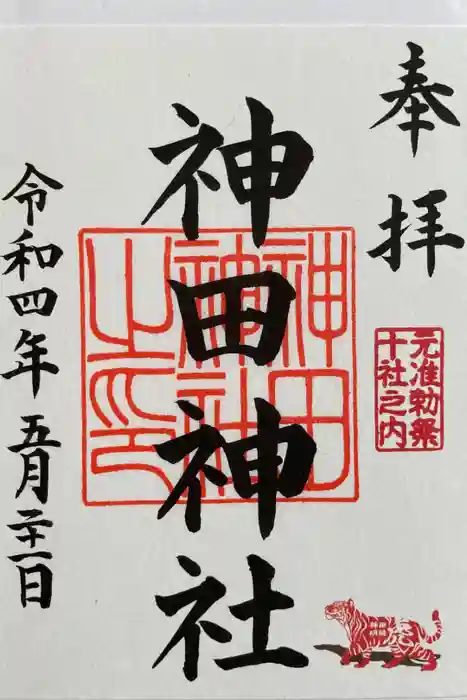 奉拝
元准勅祭
十社之内
神田神社
神田
神社
之印
令和四年五月二十一日